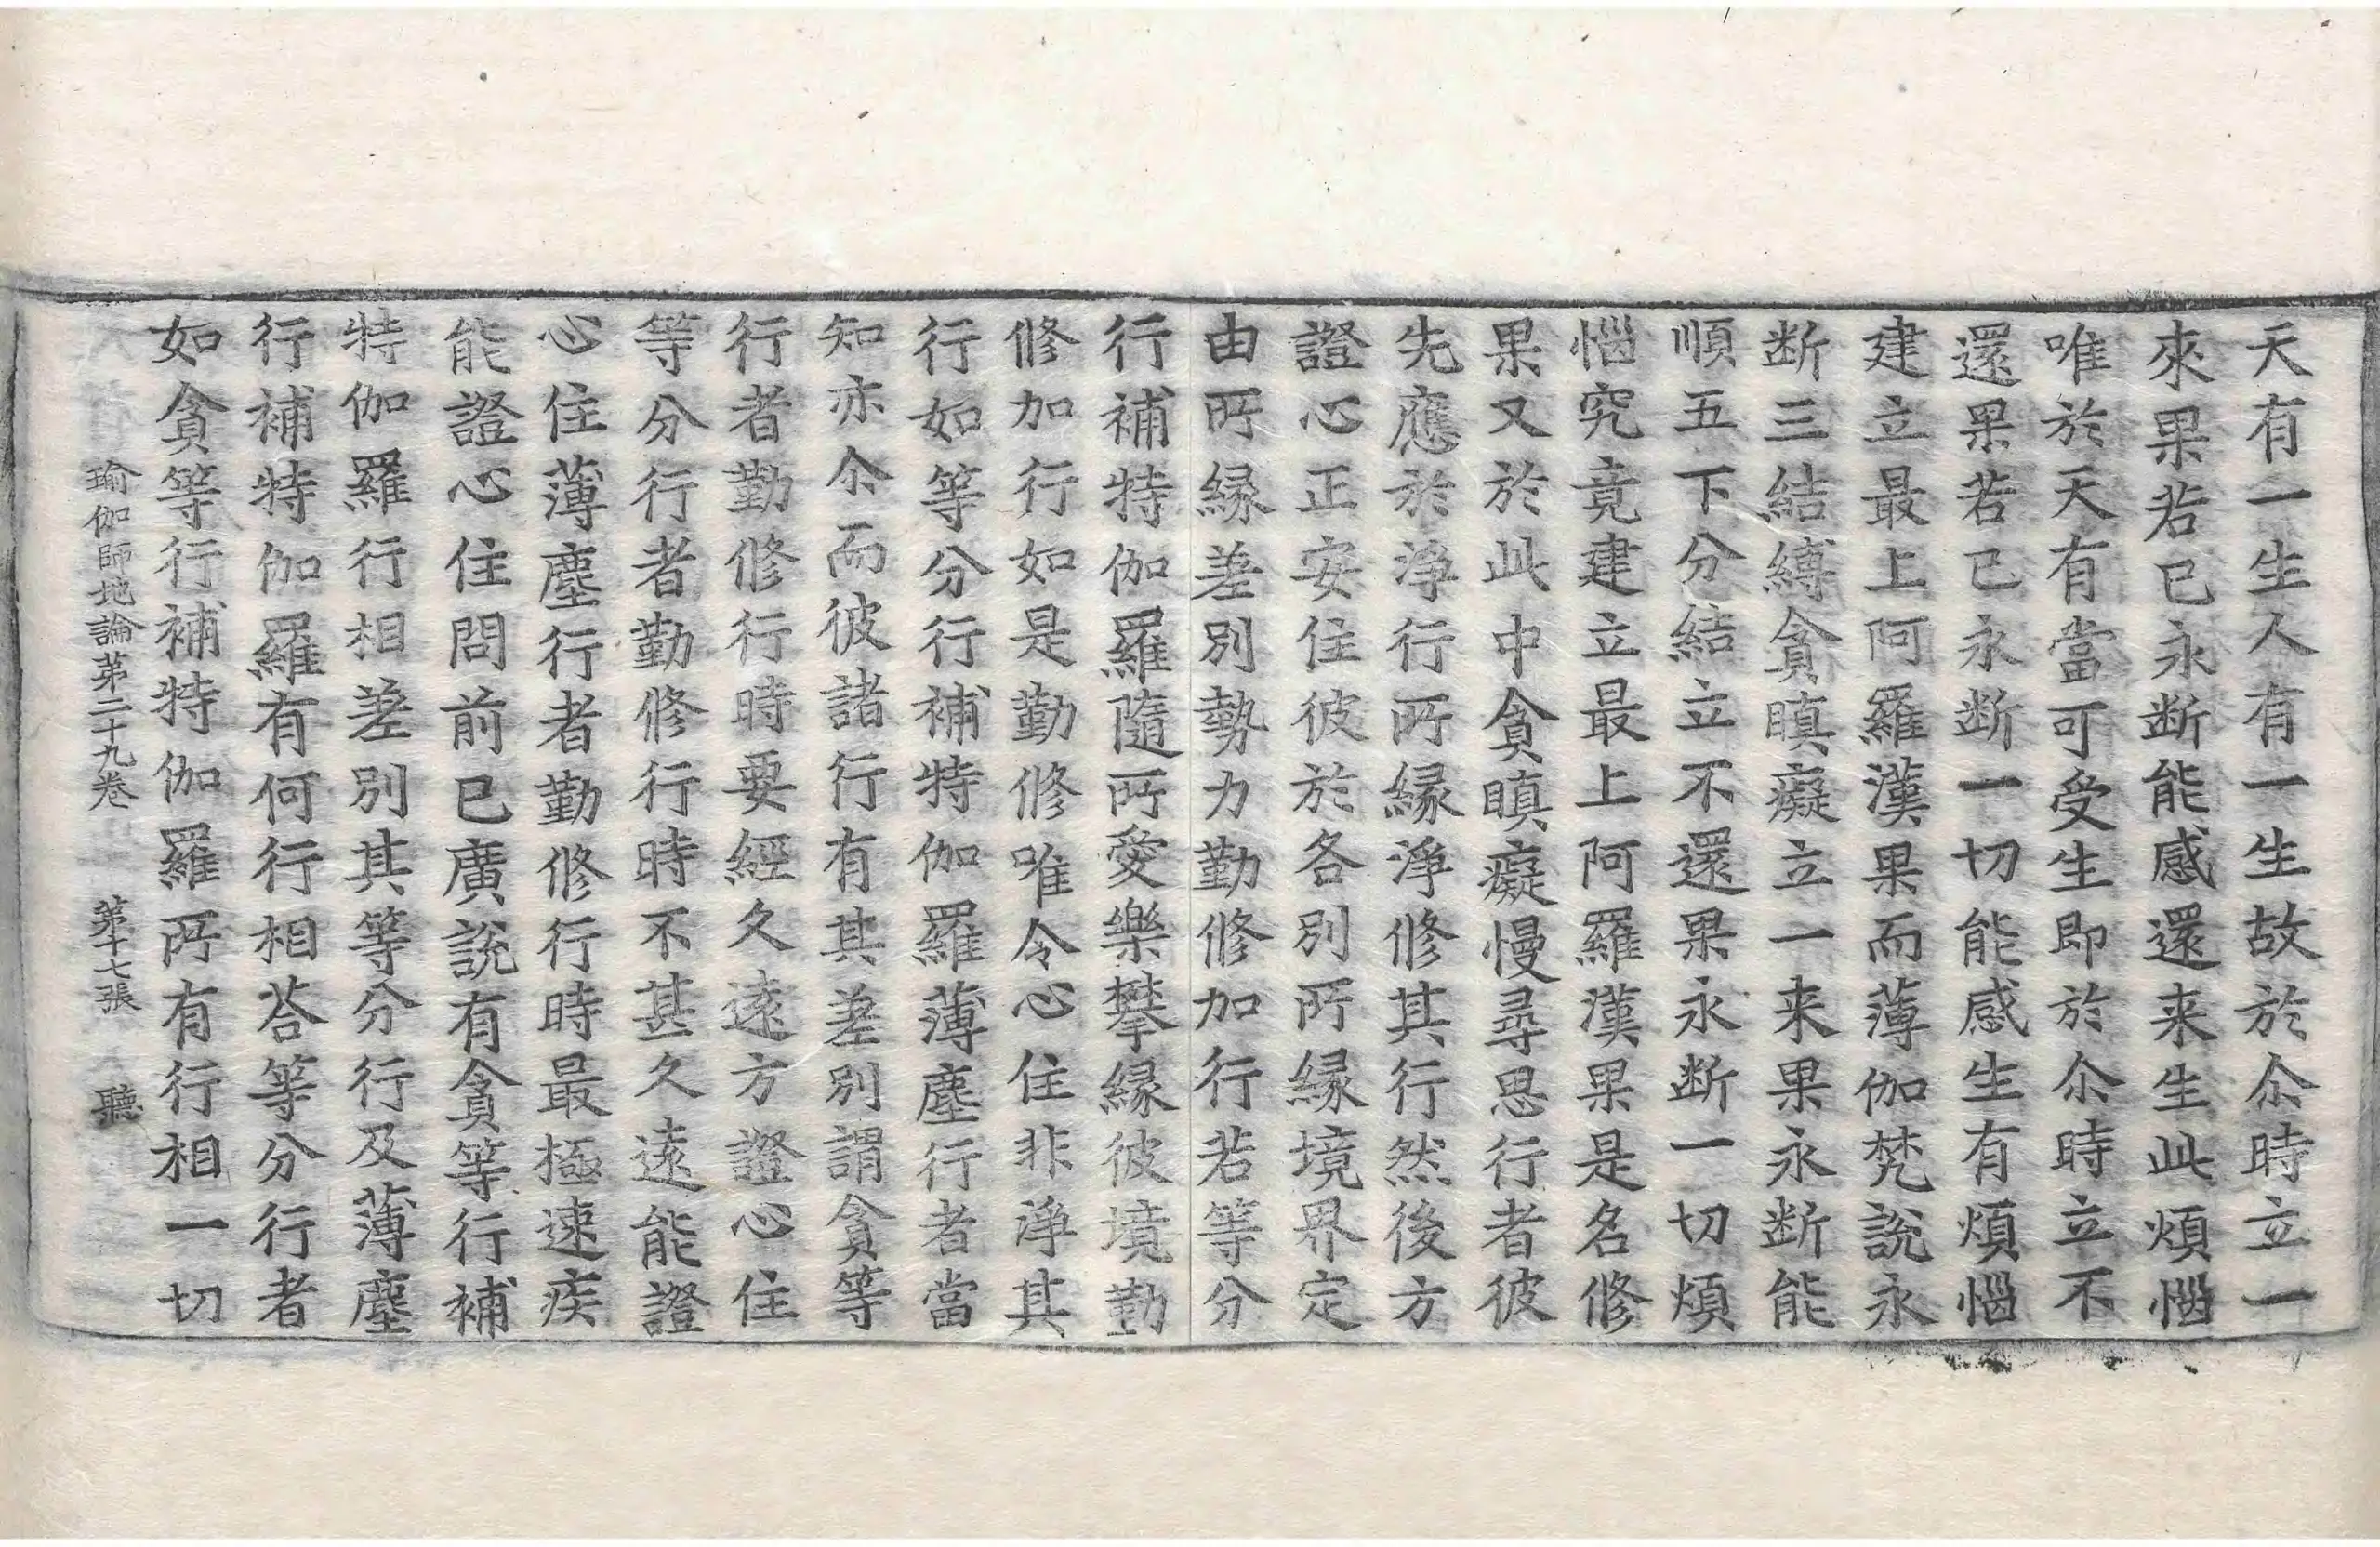 天有一生人有一生故於尒時立一
來果若已永断能感還来生此煩惱
唯於天有當可受生即於尒時立不
還果若已永断一切能感生有煩惱
建立最上阿羅漢果而薄伽梵說永
断三結縛貪瞋癡立一来果永断能
順五下分結立不還果永断一切煩
惱究竟建立最上阿羅漢果是名修
果又於此中貪瞋癡慢尋思行者彼
先應於淨行所縁淨修其行然後方
證心正安住彼於各別所縁境界定
由所縁差別勢力勤修加行若等分
行補特伽羅隨所愛樂攀縁彼境勤
修加行如是勤修唯令心住非淨其
行如等分行補特伽羅薄塵行者當
知亦尒而彼諸行有其差別謂貪等
行者勤修行時要經久遠方證心住
等分行者勤修行時不甚久遠能證
心住薄塵行者勤修行時最極速疾
能證心住問前已廣說有貪等行補
特伽羅行相差別其等分行及薄塵
行補特伽羅有何行相荅等分行者
如貪等行補特伽羅所有行相一切
瑜伽師地論苐二十九卷 苐十七張 聽